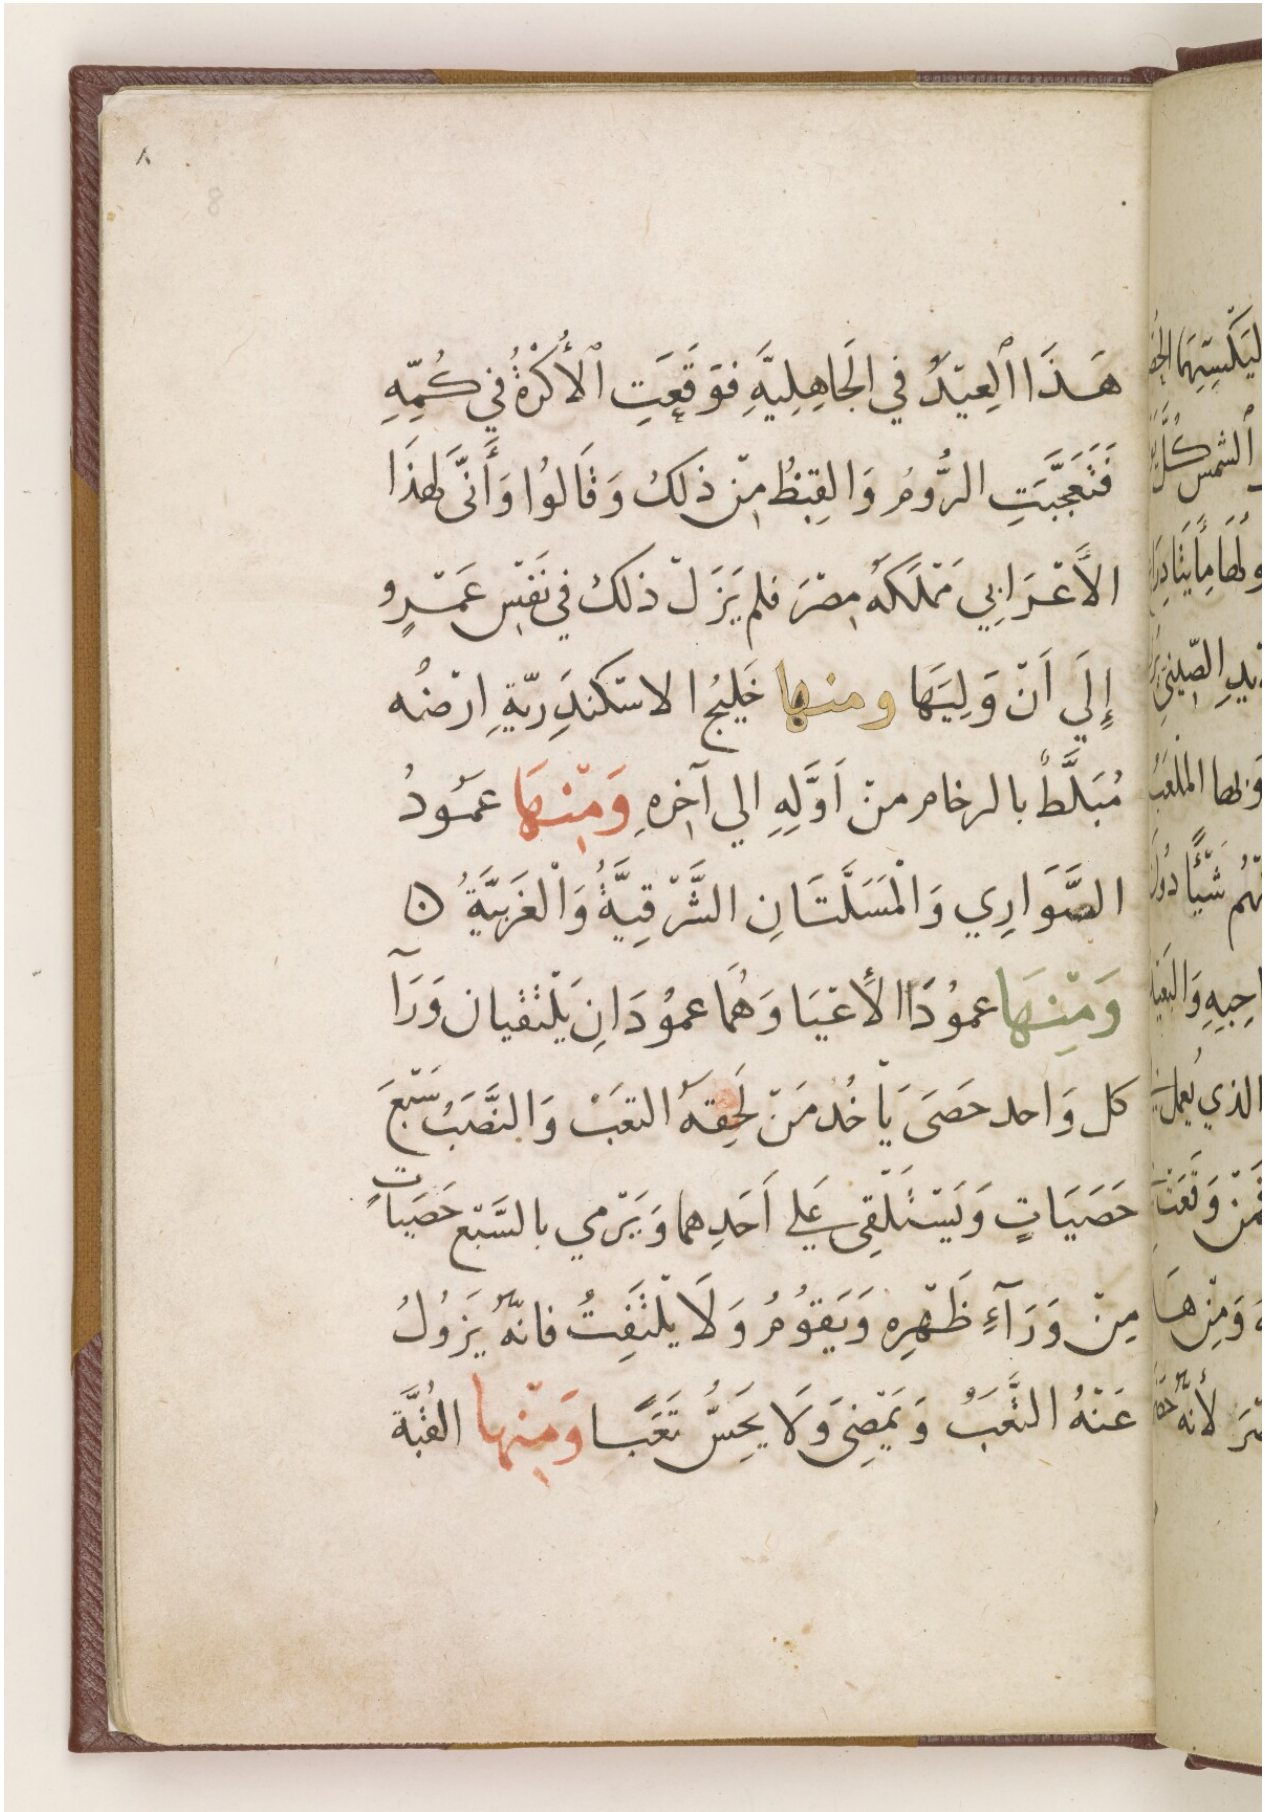 ٨
8
هَذَا الْعِيْدَ في الجَاهِلِيَّةِ فَوَقَعَتِ الْأُكْرَةُ في كُمِّهِ
فَتَعَجَّبَتِ الرُّومُ وَالقِبْطُ مِنْ ذلكَ وَقَالُوا وَأَنَّى لِهَذَا
الأَعْرَابِي مَمْلَكَةُ مِصْرَ فلم يَزَلْ ذلكَ في نَفْسِ عَمْرٍو
إِلَي اَنْ وَلِيَهَا ومنها خَلِيجُ الاسْكندَرِيّةِ اِرْضُه
مُبَلَّطٌ بالرخام منْ اَوَّلِهِ الي آخِرِهِ وَمِنْهَا عَمُودُ
الصَّوَارِي وَالْمَسَلَّتَانِ الشَّرْقِيَّةُ وَالْغَرْبِيَّةُ
وَمِنْهَا عمُودَا الأَعْيَا وَهُمَا عمُودَانِ يَلْتقيان وَرَآ
كل وَاحد حصَىَ يَأخُد مَنْ لَحِقَهُ التعَبْ وَالنَّصَبُ سَبْعَ
حَصَيَاتٍ وَيَسْتَلْقِى عَلي اَحَدِهما وَيَرْمي بالسَّبْع حَصَيات
مِنْ وَرَآءِ ظَهْرِهِ وَيَقوُمُ وَلَا يلْتَفِتُ فانّهُ يَزُولُ
عَنْهُ التَّعَبُ وَيَمْضِى وَلَا يحِسُّ تَعَبًا وَمِنْها القُبَّة